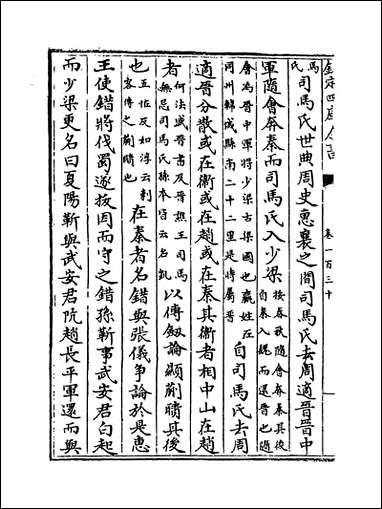 欽定四庫全書
卷一百三十
馬氏
司馬氏世典周史惠襄之間司馬氏去周適晉晉中
軍隨會奔秦而司馬氏入少梁
按春秋隨會奔秦其後
自秦入魏而還晉也隨
會為晉中軍將少梁古梁國也嬴姓在
同州韓城縣南二十二里是時屬晉
自司馬氏去周
適晉分散或在衛或在趙或在秦其衛者相中山在趙
者
何法盛晉書及晉譙王司馬
無忌司馬氏系本皆云名凱
以傳劔論顯蒯聵其後
也
王及如淳云刺
客傳之蒯聵也
在秦者名錯與張儀爭論於是惠
王使錯將伐蜀遂拔因而守之錯孫靳事武安君白起
而少梁更名曰夏陽靳與武安君阬趙長平軍還而與